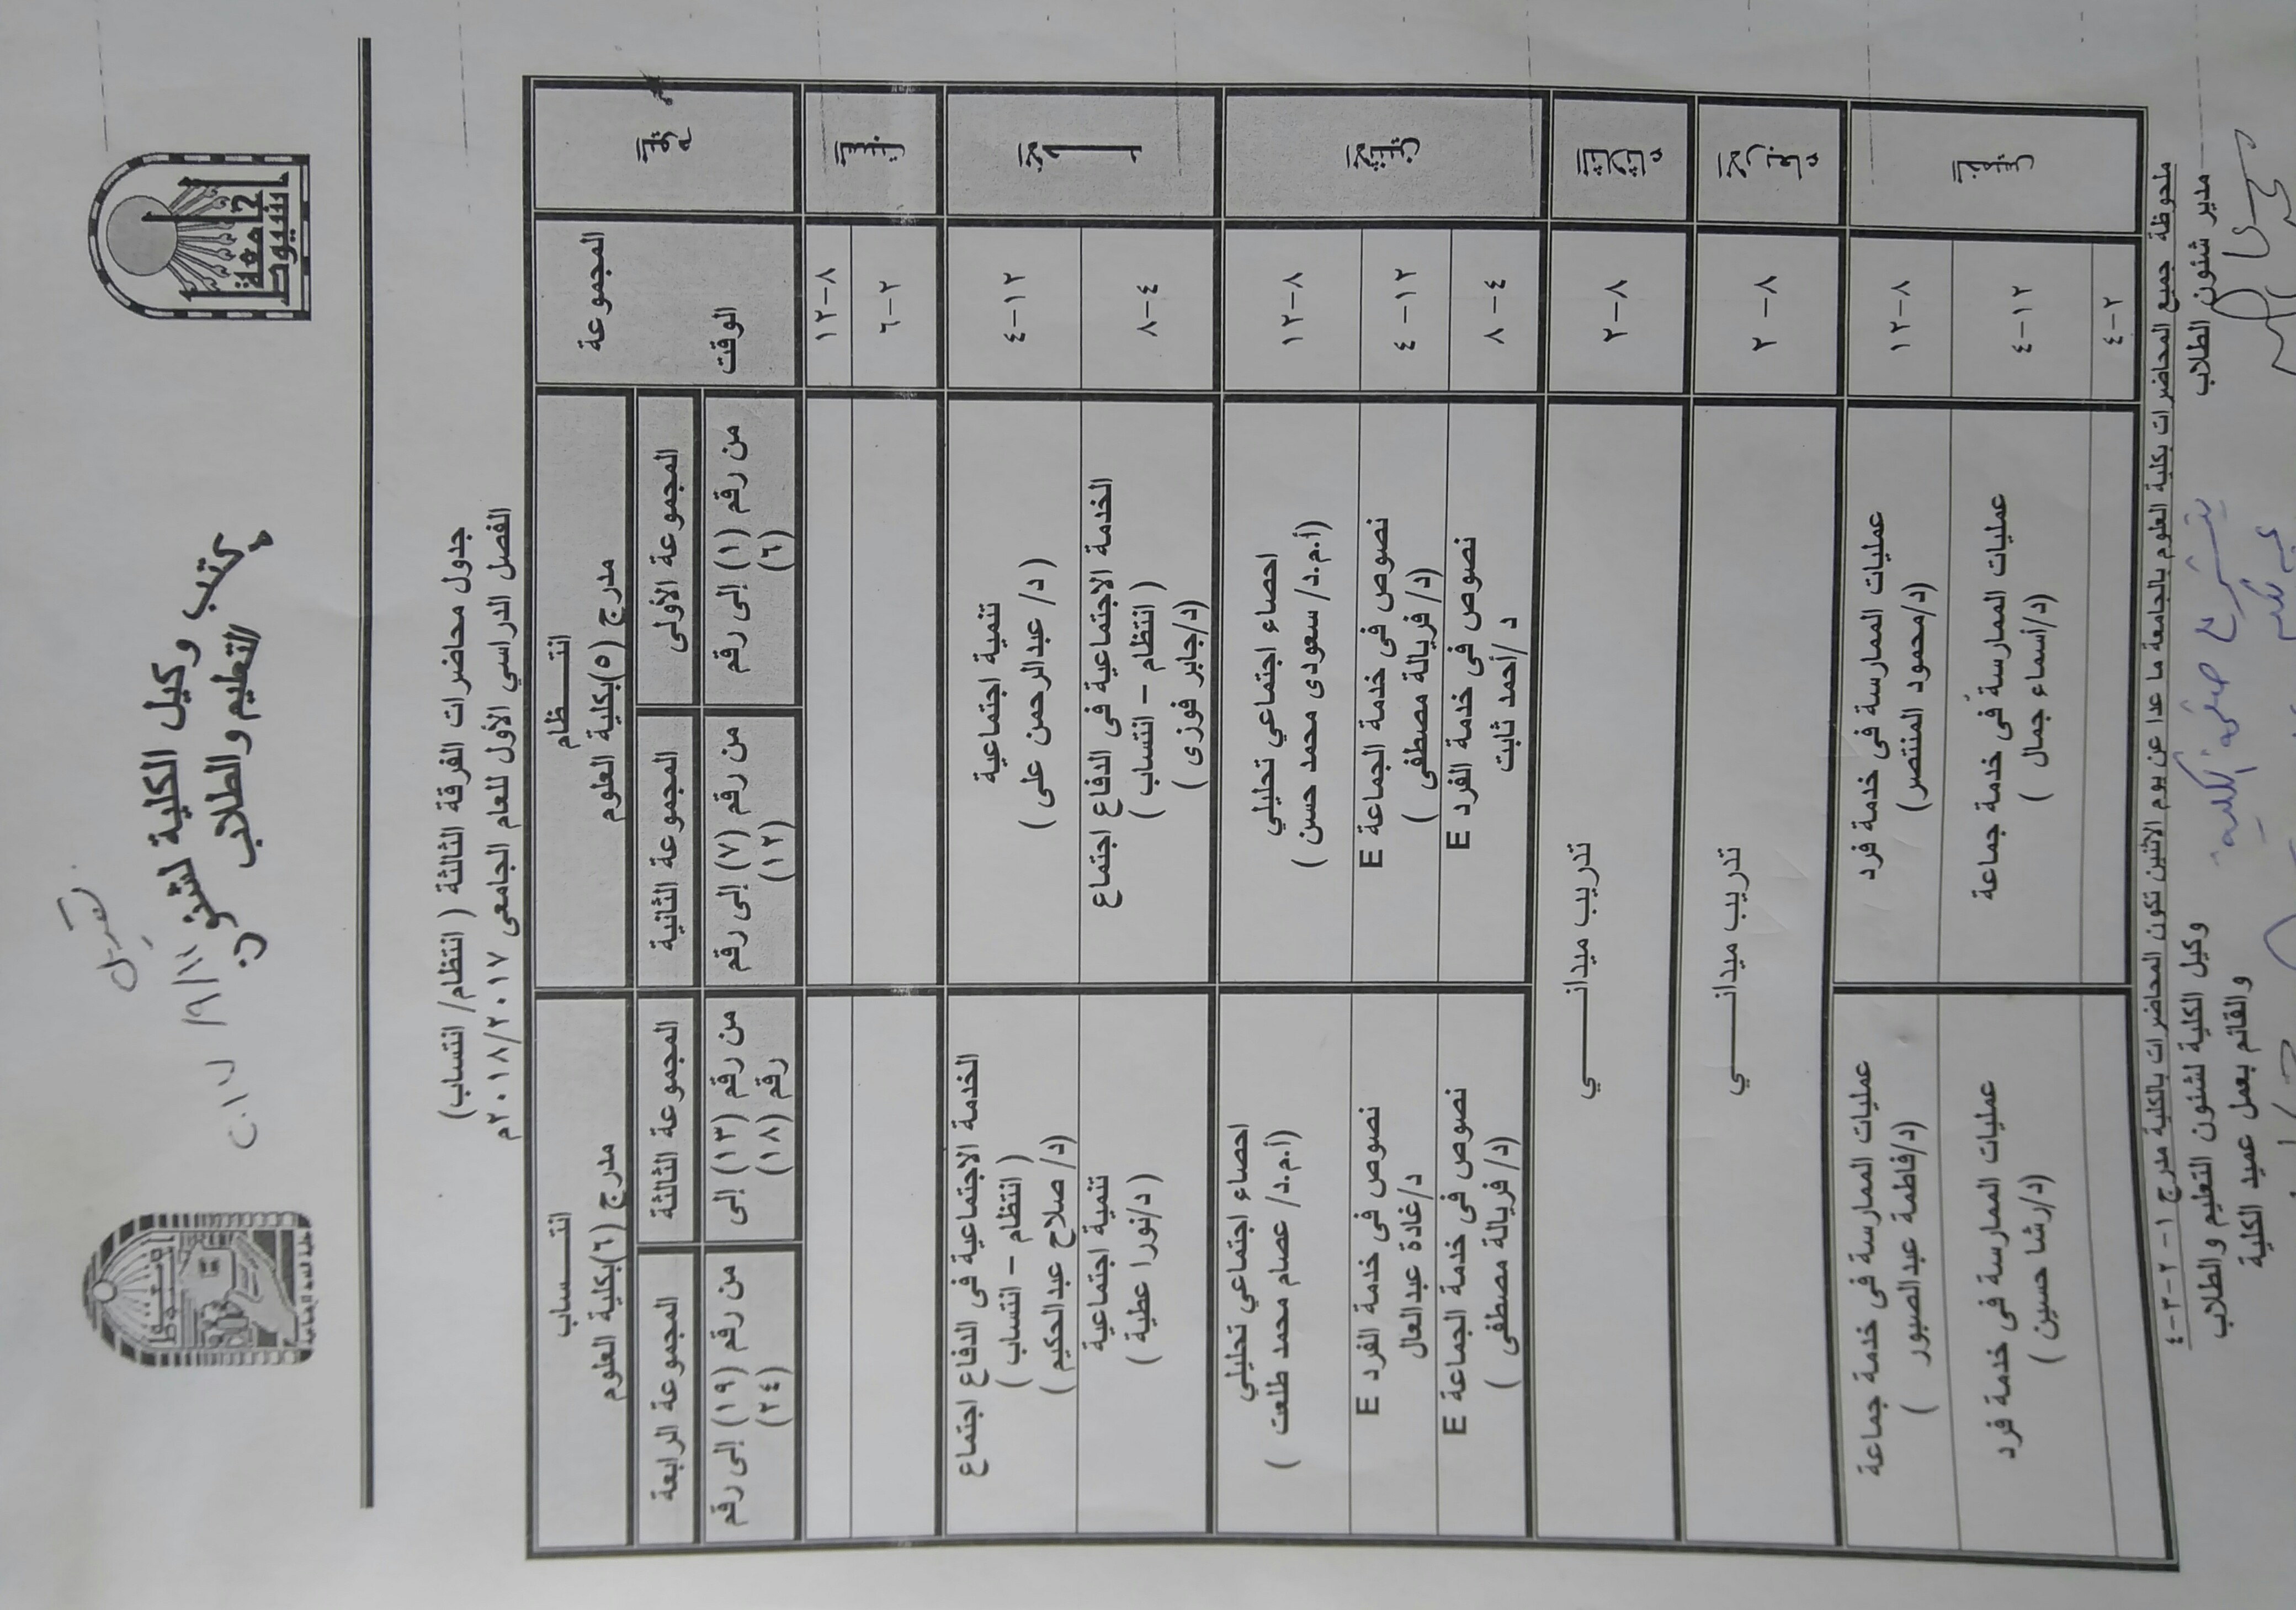 جامعة
أسيوط
مكتب وكيل الكلية لشئون
التعليم والطلاب
تعديل
٢٠١٧/٩/١١
جدول محاضرات الفرقة الثالثة ( انتظام/ انتساب)
الفصل الدراسي الأول للعام الجامعى ٢٠١٨/٢٠١٧م
اليوم
المجموعة
الوقت
انتـــــظام
مدرج (٥)بكلية العلوم
انتـــــساب
مدرج (٦)بكلية العلوم
المجموعة الأولى
المجموعة الثانية
المجموعة الثالثة
المجموعة الرابعة
من رقم (١) إلى رقم
(٦)
من رقم (٧) إلى رقم
(١٢)
من رقم (١٣) إلى
رقم (١٨)
من رقم (١٩) إلى رقم
(٢٤)
السبت
٨-١٢
٢-٦
الأحد
١٢-٤
تنمية اجتماعية
(د/ عبدالرحمن على )
الخدمة الاجتماعية فى الدفاع اجتماع
( انتظام – انتساب )
(د/ صلاح عبدالحكيم )
٤-٨
الخدمة الاجتماعية فى الدفاع اجتماع
( انتظام – انتساب )
(د/جابر فوزى )
تنمية اجتماعية
(د/نورا عطية )
الاثنين
٨-١٢
احصاء اجتماعي تحليلي
(أ.م.د/ سعودى محمد حسن )
احصاء اجتماعي تحليلي
(أ.م.د/ عصام محمد طلعت )
١٢- ٤
نصوص فى خدمة الجماعة E
(د/ فريالة مصطفى )
نصوص فى خدمة الفرد E
د/غادة عبدالعال
٤ - ٨
نصوص فى خدمة الفرد E
د /أحمد ثابت
نصوص فى خدمة الجماعة E
(د/ فريالة مصطفى )
الثلاثاء
٨-٢
تدريب ميدانـــــي
الأربعاء
٨- ٢
تدريب ميدانـــــي
الخميس
٨-١٢
عمليات الممارسة فى خدمة فرد
(د/محمود المنتصر)
عمليات الممارسة فى خدمة جماعة
(د/فاطمة عبدالصبور )
١٢-٤
عمليات الممارسة فى خدمة جماعة
(د/أسماء جمال )
عمليات الممارسة فى خدمة فرد
(د/رشا حسين )
٢-٤
ملحوظة جميع المحاضرات بكلية العلوم بالجامعة ما عدا عن يوم الاثنين تكون المحاضرات بالكلية مدرج ١-٢-٣-٤
مدير شئون الطلاب
وكيل الكلية لشئون التعليم والطلاب
والقائم بعمل عميد الكلية